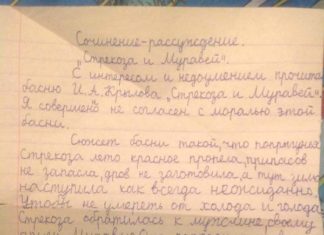 Сочинение-рассуждение.
„Стрекоза и Муравей".
С интересом и недоумением прочитал
басню И.А.Крылова „Стрекоза и Муравей".
Я совершено не согласен с моралью этой
басни.
Сюжет басни такой, что попрыгунья
Стрекоза лето красное пропела, припасов
не запасла, дров не заготовила, а тут зима
наступила как всегда неожиданно.
Чтобы не умереть от холода и голода
Стрекоза обратилась к мужчине, своему